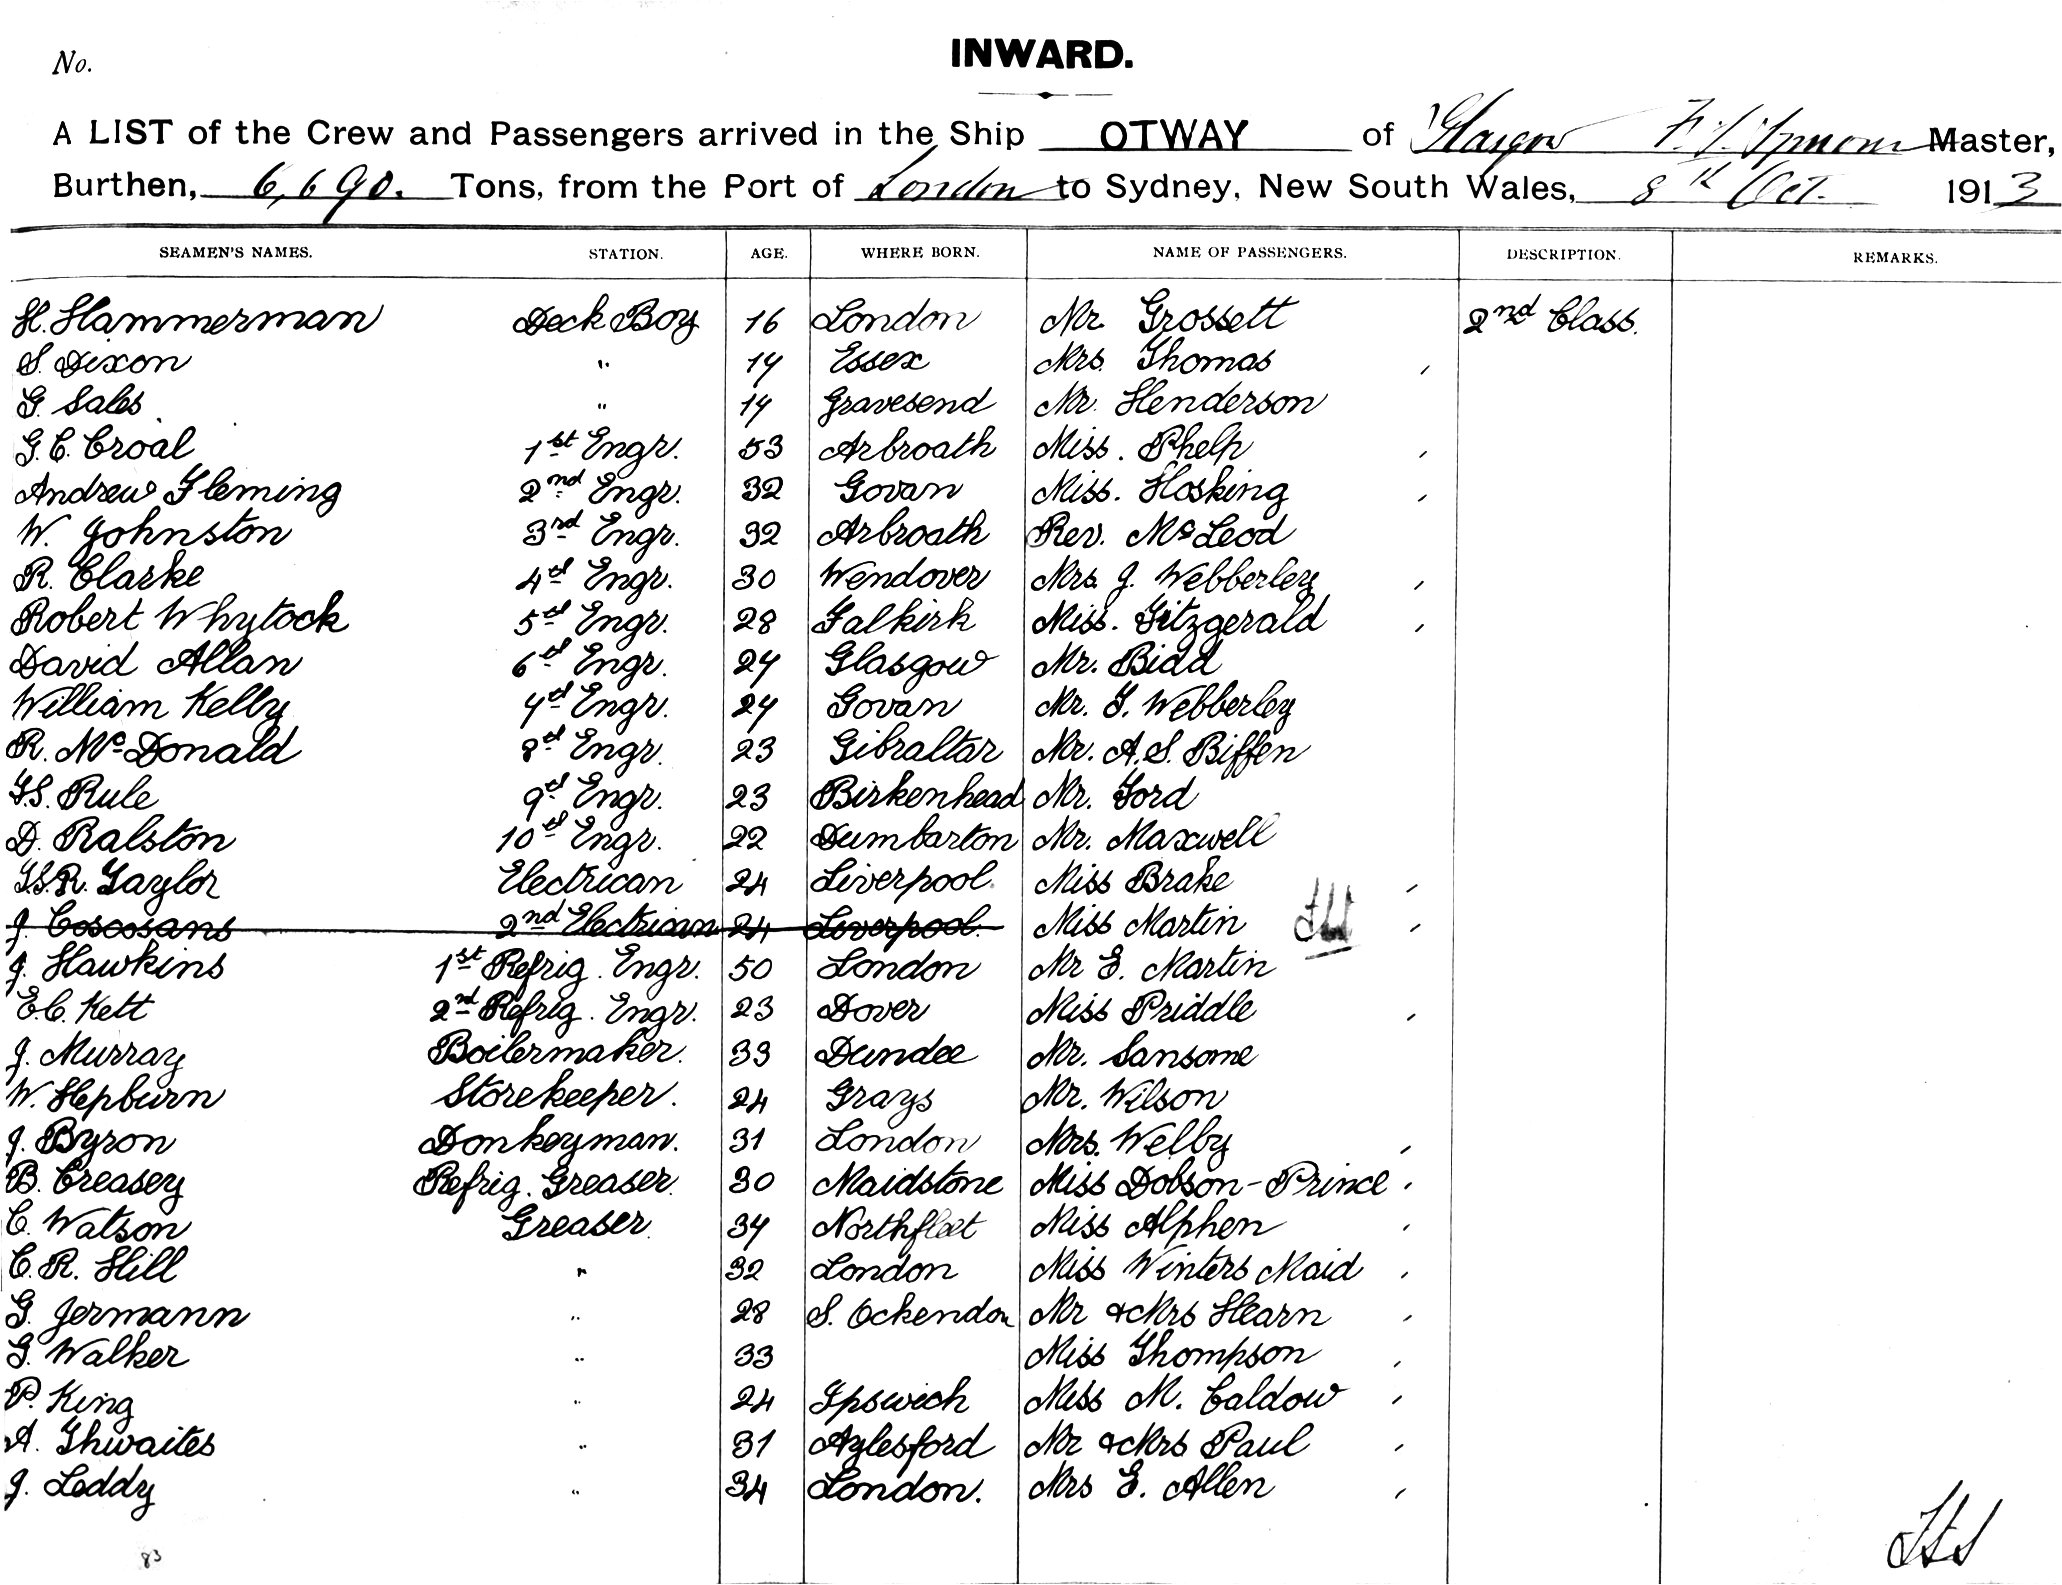 No.
INWARD.
A LIST of the Crew and Passengers arrived in the Ship OTWAY of Glasgow Master,
Burthen, 6,690. Tons, from the Port of London to Sydney, New South Wales, 8th Oct. 1913
SEAMEN'S NAMES. STATION. AGE. WHERE BORN. NAME OF PASSENGERS. DESCRIPTION. REMARKS.
H. Hammerman Deck Boy 16 London Mr. Grossett 2nd Class.
S. Dixon " 17 Essex Mrs. Thomas
G. Sales " 17 Gravesend Mr. Henderson
G.C. Croal 1st Engr. 53 Arbroath Miss. Phelp
Andrew Fleming 2nd Engr. 32 Govan Miss. Hosking
W. Johnston 3rd Engr. 32 Arbroath Rev. McLeod
R. Clarke 4th Engr. 30 Wendover Mrs. J. Webberley
Robert Whytock 5th Engr. 28 Falkirk Miss. Fitzgerald
David Allan 6th Engr. 27 Glasgow Mr. Bidd
William Kelly 7th Engr. 27 Govan Mr. T. Webberley
R. McDonald 8th Engr. 23 Gibraltar Mr. A.S. Biffen
T.S. Rule 9th Engr. 23 Birkenhead Mr. Ford
D. Ralston 10th Engr. 22 Dumbarton Mr. Maxwell
T.S.R. Taylor Electrican 24 Liverpool. Miss Brake
J. Coscosans 2nd Electrican 24 Liverpool. Miss Martin
J. Hawkins 1st Refrig. Engr. 50 London Mr E. Martin
E.C. Kett 2nd Refrig. Engr. 23 Dover Miss Priddle
J. Murray Boilermaker. 33 Dundee Mr. Sansome
W. Hepburn Storekeeper. 24 Grays Mr. Wilson
J. Byron Donkeyman. 31 London Mrs. Welby
B. Creasey Refrig. Greaser. 30 Maidstone Miss Dobson-Prince
C. Watson Greaser. 37 Northfleet Miss Alphen
C. R. Hill " 32 London Miss Winters Maid
G. Jermann " 28 S. Ockendon Mr & Mrs Hearn
G. Walker " 33 Miss Thompson
P. King " 24 Ipswich Miss M. Caldow
A. Thwaites " 31 Aylesford Mr & Mrs Paul
J. Leddy " 34 London. Mrs E. Allen
83